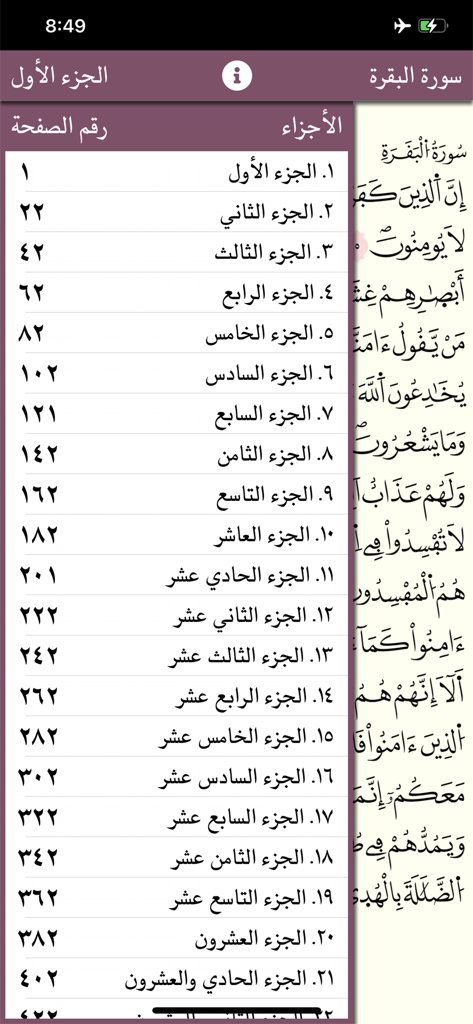 8:49
سورة البقرة
الجزء الأول
الأجزاء رقم الصفحة
١. الجزء الأول ١
٢. الجزء الثاني ٢٢
٣. الجزء الثالث ٤٢
٤. الجزء الرابع ٦٢
٥. الجزء الخامس ٨٢
٦. الجزء السادس ١٠٢
٧. الجزء السابع ١٢١
٨. الجزء الثامن ١٤٢
٩. الجزء التاسع ١٦٢
١٠. الجزء العاشر ١٨٢
١١. الجزء الحادي عشر ٢٠١
١٢. الجزء الثاني عشر ٢٢٢
١٣. الجزء الثالث عشر ٢٤٢
١٤. الجزء الرابع عشر ٢٦٢
١٥. الجزء الخامس عشر ٢٨٢
١٦. الجزء السادس عشر ٣٠٢
١٧. الجزء السابع عشر ٣٢٢
١٨. الجزء الثامن عشر ٣٤٢
١٩. الجزء التاسع عشر ٣٦٢
٢٠. الجزء العشرون ٣٨٢
٢١. الجزء الحادي والعشرون ٤٠٢
سُورَةُ الْبَقَرَةِ
إِنَّ ٱلَّذِينَ
لَا يُومِنُونَ
أَبْصَٰرِهِمْ
مَنْ يَّقُولُ ءَامَنَّا
يُخَٰدِعُونَ ٱللَّهَ
وَمَا يَشْعُرُونَ
وَلَهُمْ عَذَابٌ
لَا تُفْسِدُوا۟ فِے
هُمُ ٱلْمُفْسِدُونَ
ءَامِنُوا۟ كَمَآ
أَلَآ إِنَّهُمْ هُمُ
ٱلذِينَ ءَامَنُوا۟
مَعَكُمُۥٓ إِنَّمَا
وَيَمُدُّهُمْ فِے
ٱلضَّلَٰلَةَ بِالْهُد۪يٰ